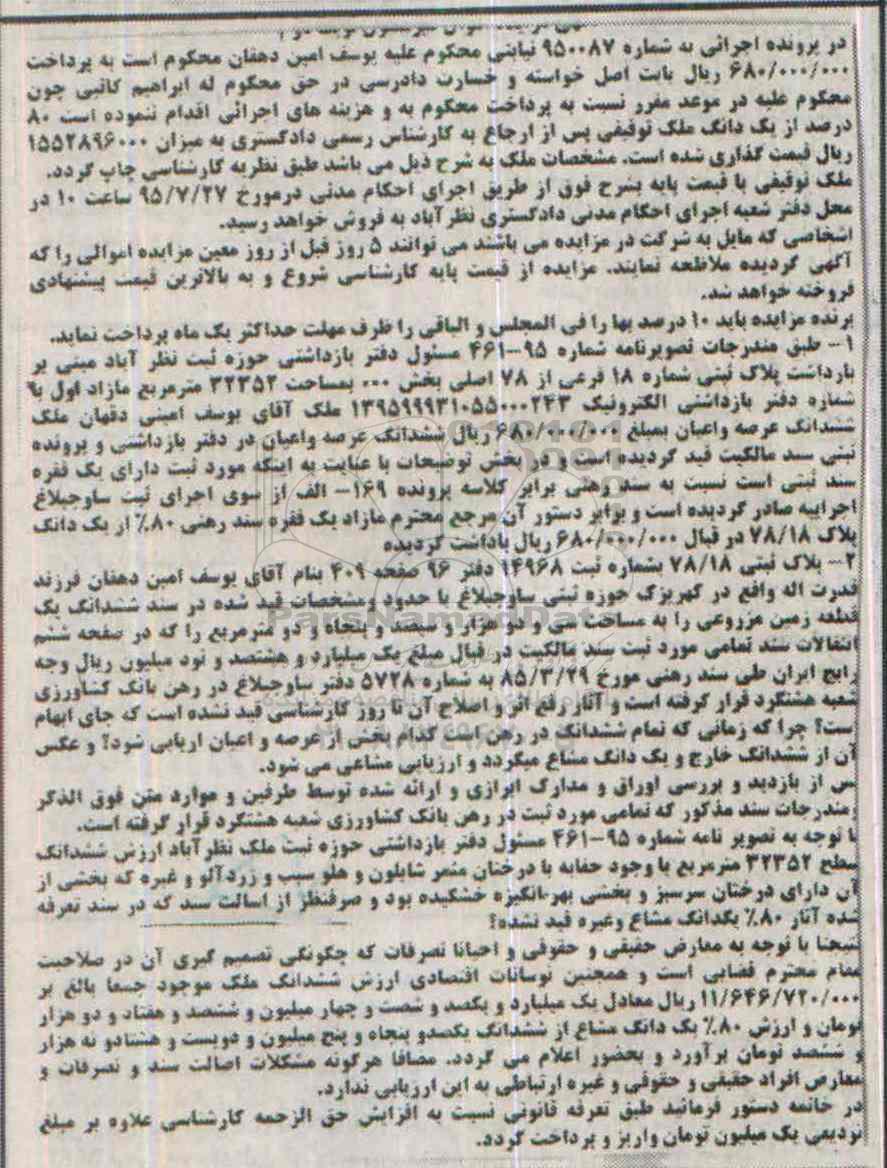 آگهی مزایده اموال غیرمنقول نوبت دوم
در پرونده اجرائی به شماره ۹۵۰۰۸۷ نیابتی محکوم علیه یوسف امین دهقان محکوم است به پرداخت
۶۸۰/۰۰۰/۰۰۰ ریال بابت اصل خواسته و خسارت دادرسی در حق محکوم له ابراهیم کاتبی چون
محکوم علیه در موعد مقرر نسبت به پرداخت محکوم به و هزینه های اجرائی اقدام ننموده است ۸۰
درصد از یک دانگ ملک توقیفی پس از ارجاع به کارشناس رسمی دادگستری به میزان ۱۵۵۲۸۹۶۰۰۰
ریال قیمت گذاری شده است. مشخصات ملک به شرح ذیل می باشد طبق نظریه کارشناسی چاپ گردد.
ملک توقیفی با قیمت پایه بشرح فوق از طریق اجرای احکام مدنی درمورخ ۹۵/۷/۲۷ ساعت ۱۰ در
محل دفتر شعبه اجرای احکام مدنی دادگستری نظر آباد به فروش خواهد رسید.
اشخاصی که مایل به شرکت در مزایده می باشند می توانند ۵ روز قبل از روز معین مزایده اموالی را که
آگهی گردیده ملاظعه نمایند. مزایده از قیمت پایه کارشناسی شروع و به بالاترین قیمت پیشنهادی
فروخته خواهد شد.
برنده مزایده باید ۱۰ درصد بها را فی المجلس و الباقی را ظرف مهلت حداکثر یک ماه پرداخت نماید.
۱- طبق مندرجات تصویرنامه شماره ۹۵-۴۶۱ مسئول دفتر بازداشتی حوزه ثبت نظر آباد مبنی بر
بارداشت پلاک ثبتی شماره ۱۸ فرعی از ۷۸ اصلی بخش ۰۰۰ بمساحت ۳۲۳۵۲ مترمربع مازاد اول با
شماره دفتر بازداشتی الکترونیک ۱۳۹۵۹۹۹۳۱۰۵۵۰۰۰۲۴۳ ملک آقای یوسف امینی دقهان ملک
ششدانگ عرصه واعیان بمبلغ ۶۸۰/۰۰۰/۰۰۰ ریال ششدانگ عرصه واعیان در دفتر بازداشتی و پرونده
ثبتی سند مالکیت قید گردیده است و در بخش توضیحات با عنایت به اینکه مورد ثبت دارای یک فقره
سند ثبتی است نسبت به سند رهنی برابر کلاسه پرونده ۱۶۹- الف از سوی اجرای ثبت ساوجبلاغ
اجراییه صادر گردیده است و برابر دستور آن مرجع محترم مازاد یک فقره سند رهنی ۸۰٪ از یک دانگ
پلاک ۷۸/۱۸ در قبال ۶۸۰/۰۰۰/۰۰۰ ریال باداشت گردیده
۲- پلاک ثبتی ۷۸/۱۸ بشماره ثبت ۱۴۹۶۸ دفتر ۹۶ صفحه ۴۰۹ بنام آقای یوسف امین دهقان فرزند
قدرت اله واقع در کهریزک حوزه ثبتی ساوجبلاغ با حدود ومشخصات قید شده در سند ششدانگ یک
قطعه زمین مزروعی را به مساحت سی و دو هزار و سیصد و پنجاه و دو مترمربع را که در صفحه ششم
انتقالات سند تمامی مورد ثبت سند مالکیت در قبال مبلغ یک میلیارد و هشتصد و نود میلیون ریال وجه
رایج ایران طی سند رهنی مورخ ۸۵/۳/۲۹ به شماره ۵۷۲۸ دفتر ساوجبلاغ در رهن بانک کشاورزی
شعبه هشتگرد قرار گرفته است و آثار رفع اثر و اصلاح آن تا روز کارشناسی قید نشده است که جای ابهام
است؟ چرا که زمانی که تمام ششدانگ در رهن است کدام بخش از عرصه و اعیان اریابی شود؟ و عکس
آن از ششدانگ خارج و یک دانگ مشاع میگردد و ارزیابی مشاعی می شود.
پس از بازدید و بررسی اوراق و مدارک ابرازی و ارائه شده توسط طرفین و موارد متن فوق الذکر
ومندرجات سند مذکور که تمامی مورد ثبت در رهن بانک کشاورزی شعبه هشتگرد قرار گرفته است.
با توجه به تصویر نامه شماره ۹۵-۴۶۱ مسئول دفتر بازداشتی حوزه ثبت ملک نظرآباد ارزش ششدانگ
سطح ۳۲۳۵۲ مترمربع با وجود حقابه با درختان مثمر شابلون و هلو سیب و زردآلو و غیره که بخشی از
آن دارای درختان سرسبز و بخشی بهر-انگیزه خشکیده بود و صرفنظر از اسالت سند که در سند تعرفه
شده آثار ۸۰٪ یکدانگ مشاع وغیره قید نشده؟
نتیجتا با توجه به معارض حقیقی و حقوقی و احیانا تصرفات که چگونگی تصمیم گیری آن در صلاحیت
مقام محترم قضایی است و همچنین نوسانات اقتصادی ارزش ششدانگ ملک موجود جمعا بالغ بر
۱۱/۶۴۶/۷۲۰/۰۰۰ ریال معادل یک میلیارد و یکصد و شصت و چهار میلیون و ششصد و هفتاد و دو هزار
تومان و ارزش ۸۰٪ یک دانگ مشاع از ششدانگ یکصدو پنجاه و پنج میلیون و دویست و هشتادو نه هزار
و ششصد تومان برآورد و بحضور اعلام می گردد. مضافا هرگونه مشکلات اصالت سند و تصرفات و
معارض افراد حقیقی و حقوقی و غیره ارتباطی به این ارزیابی ندارد.
در خاتمه دستور فرمائید طبق تعرفه قانونی نسبت به افزایش حق الزحمه کارشناسی علاوه بر مبلغ
تودیعی یک میلیون تومان واریز و پرداخت گردد.